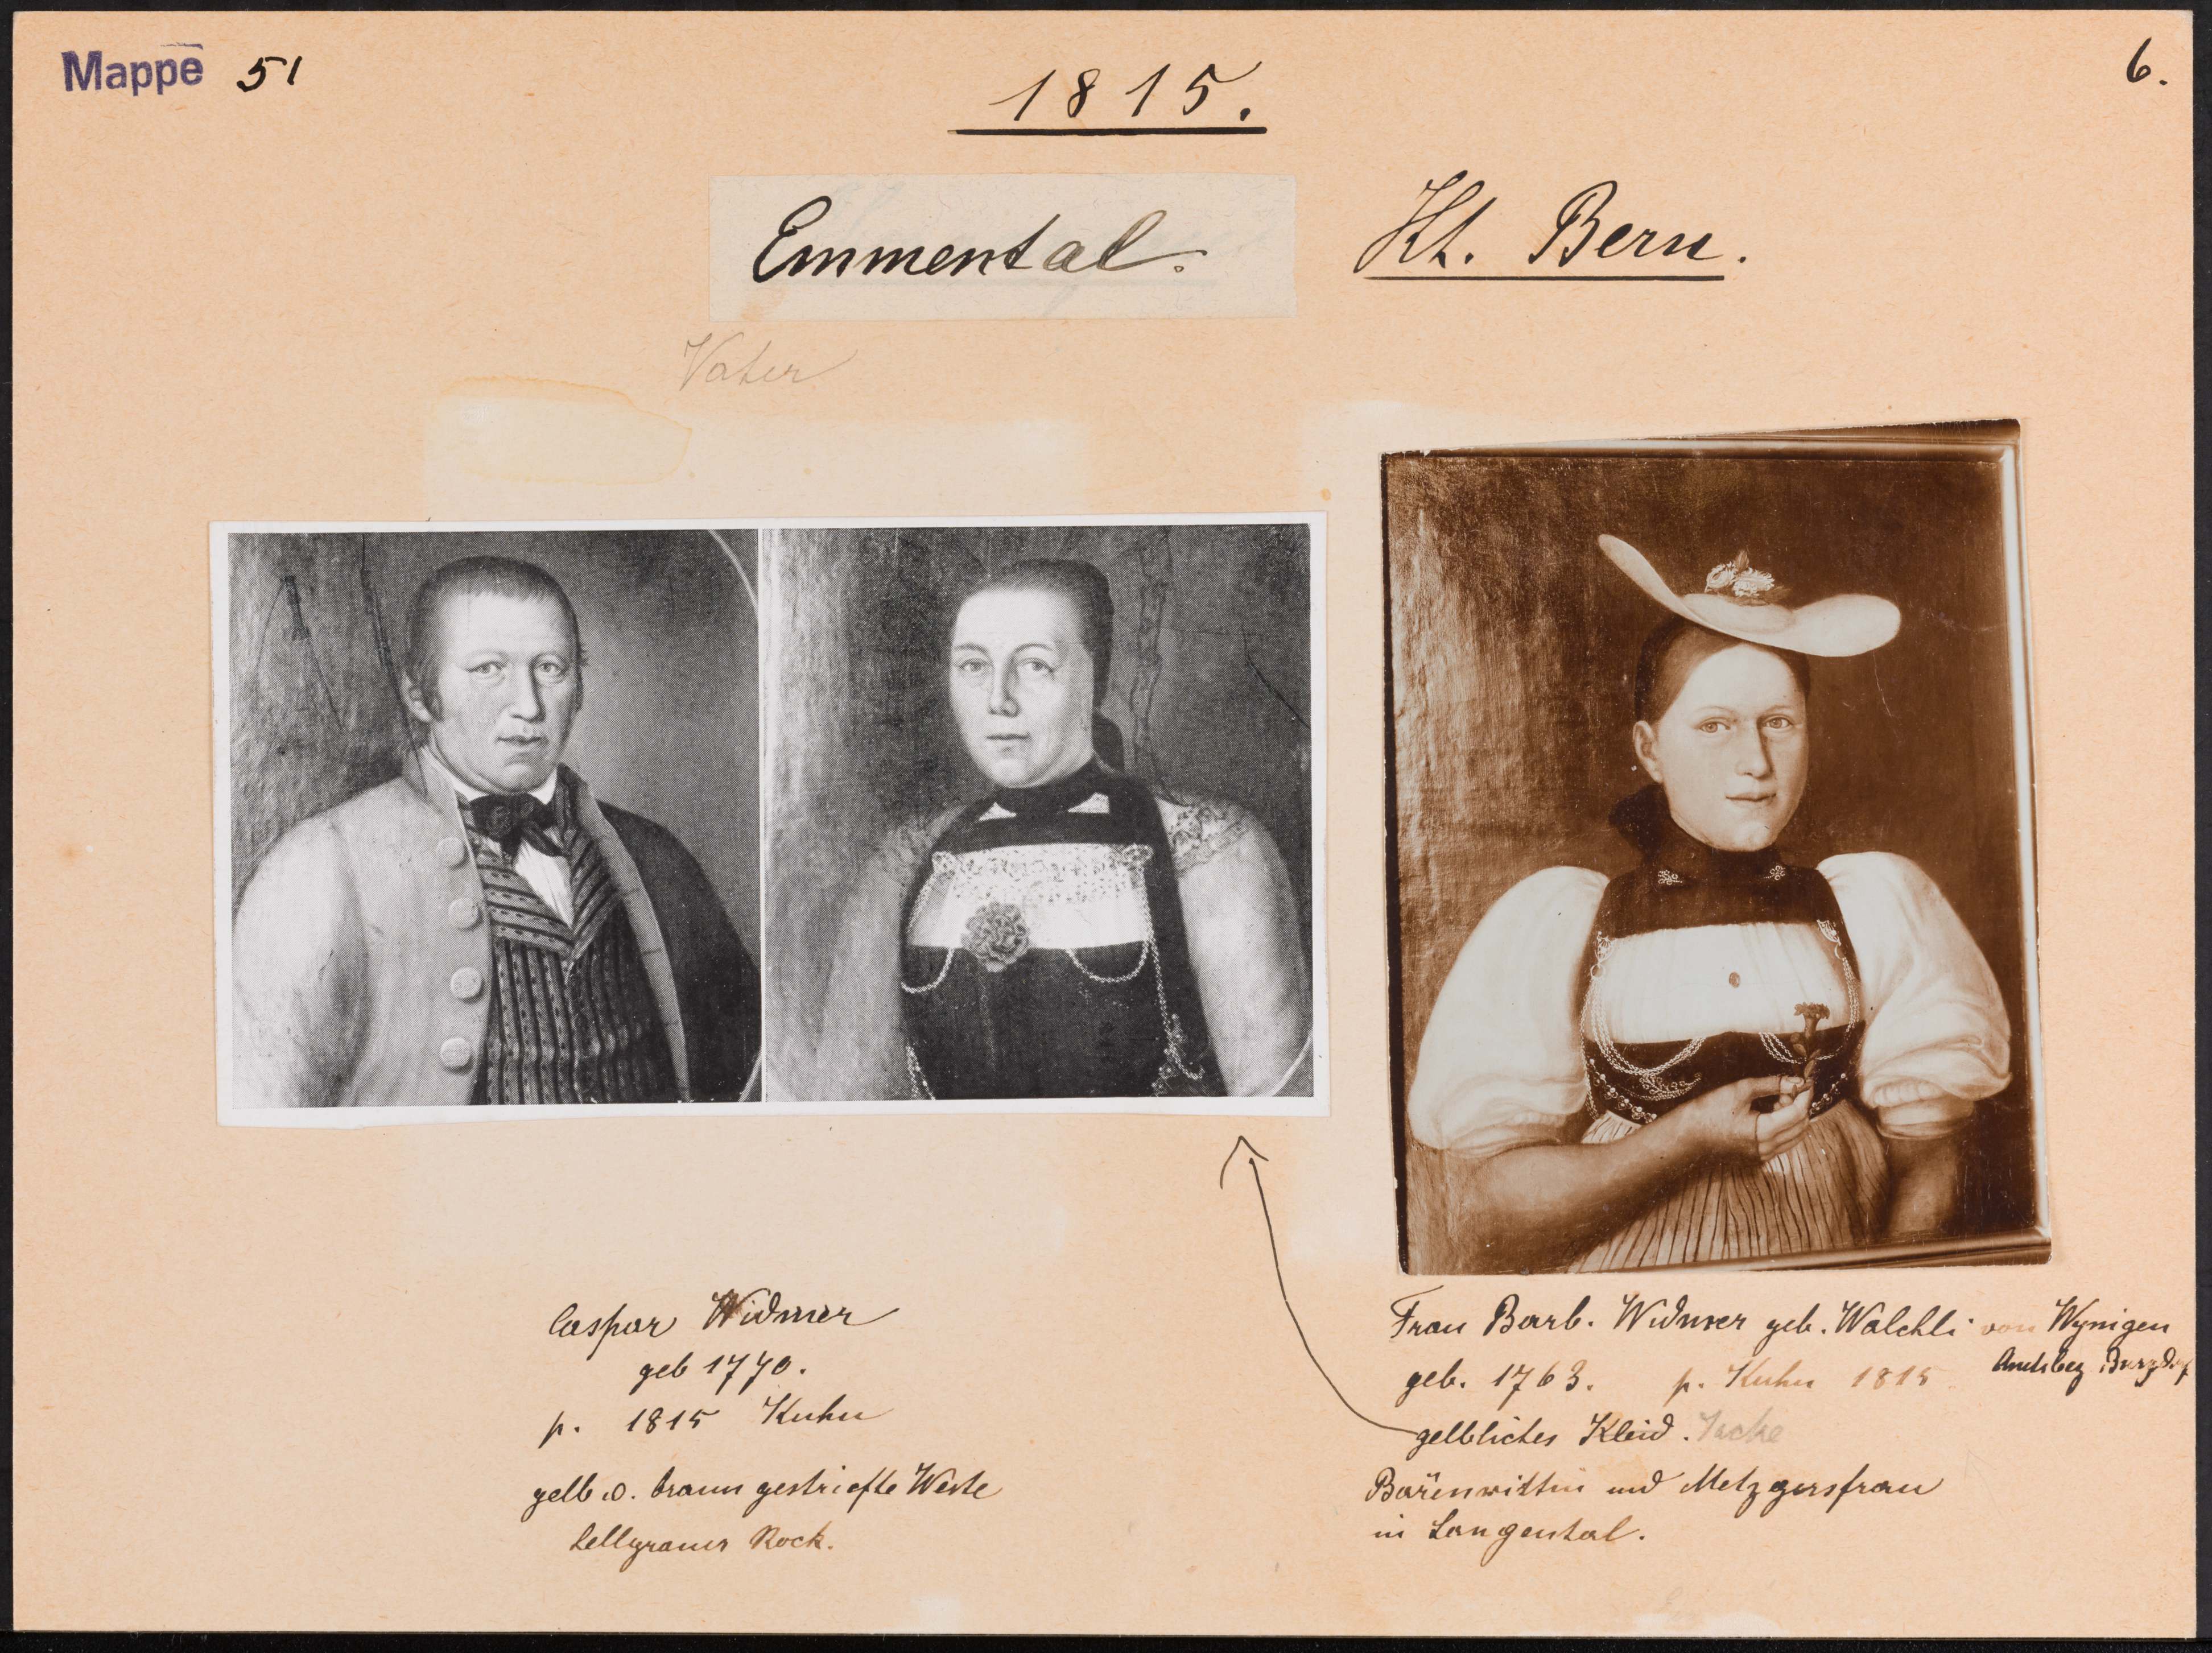 Mappe 51
1815.
6.
Emmental. Kt. Bern.
Vater
Caspar Widmer
geb 1770.
p. 1815 Kuhn
gelb u. braun gestriefte Weste
hellgrauer Rock.
Frau Barb. Widmer geb. Walchli von Wynigen
Amtsbez Burgdorf
geb. 1763. p. Kuhn 1815
gelbliches Kleid. Jacke
Bärenwirttin und Metzgersfrau
in Langental.